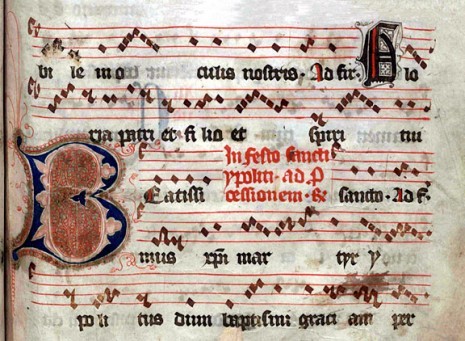 bi le in o culis nostris. Ad fir. Glo
ria patri et fi lio et spiri tui
In festo sancti
ypoliti. ad P
cessionem. R
Beatissi sancto. Ad f.
mus xpi mar tyr y
po li tus dum baptismi graci am per